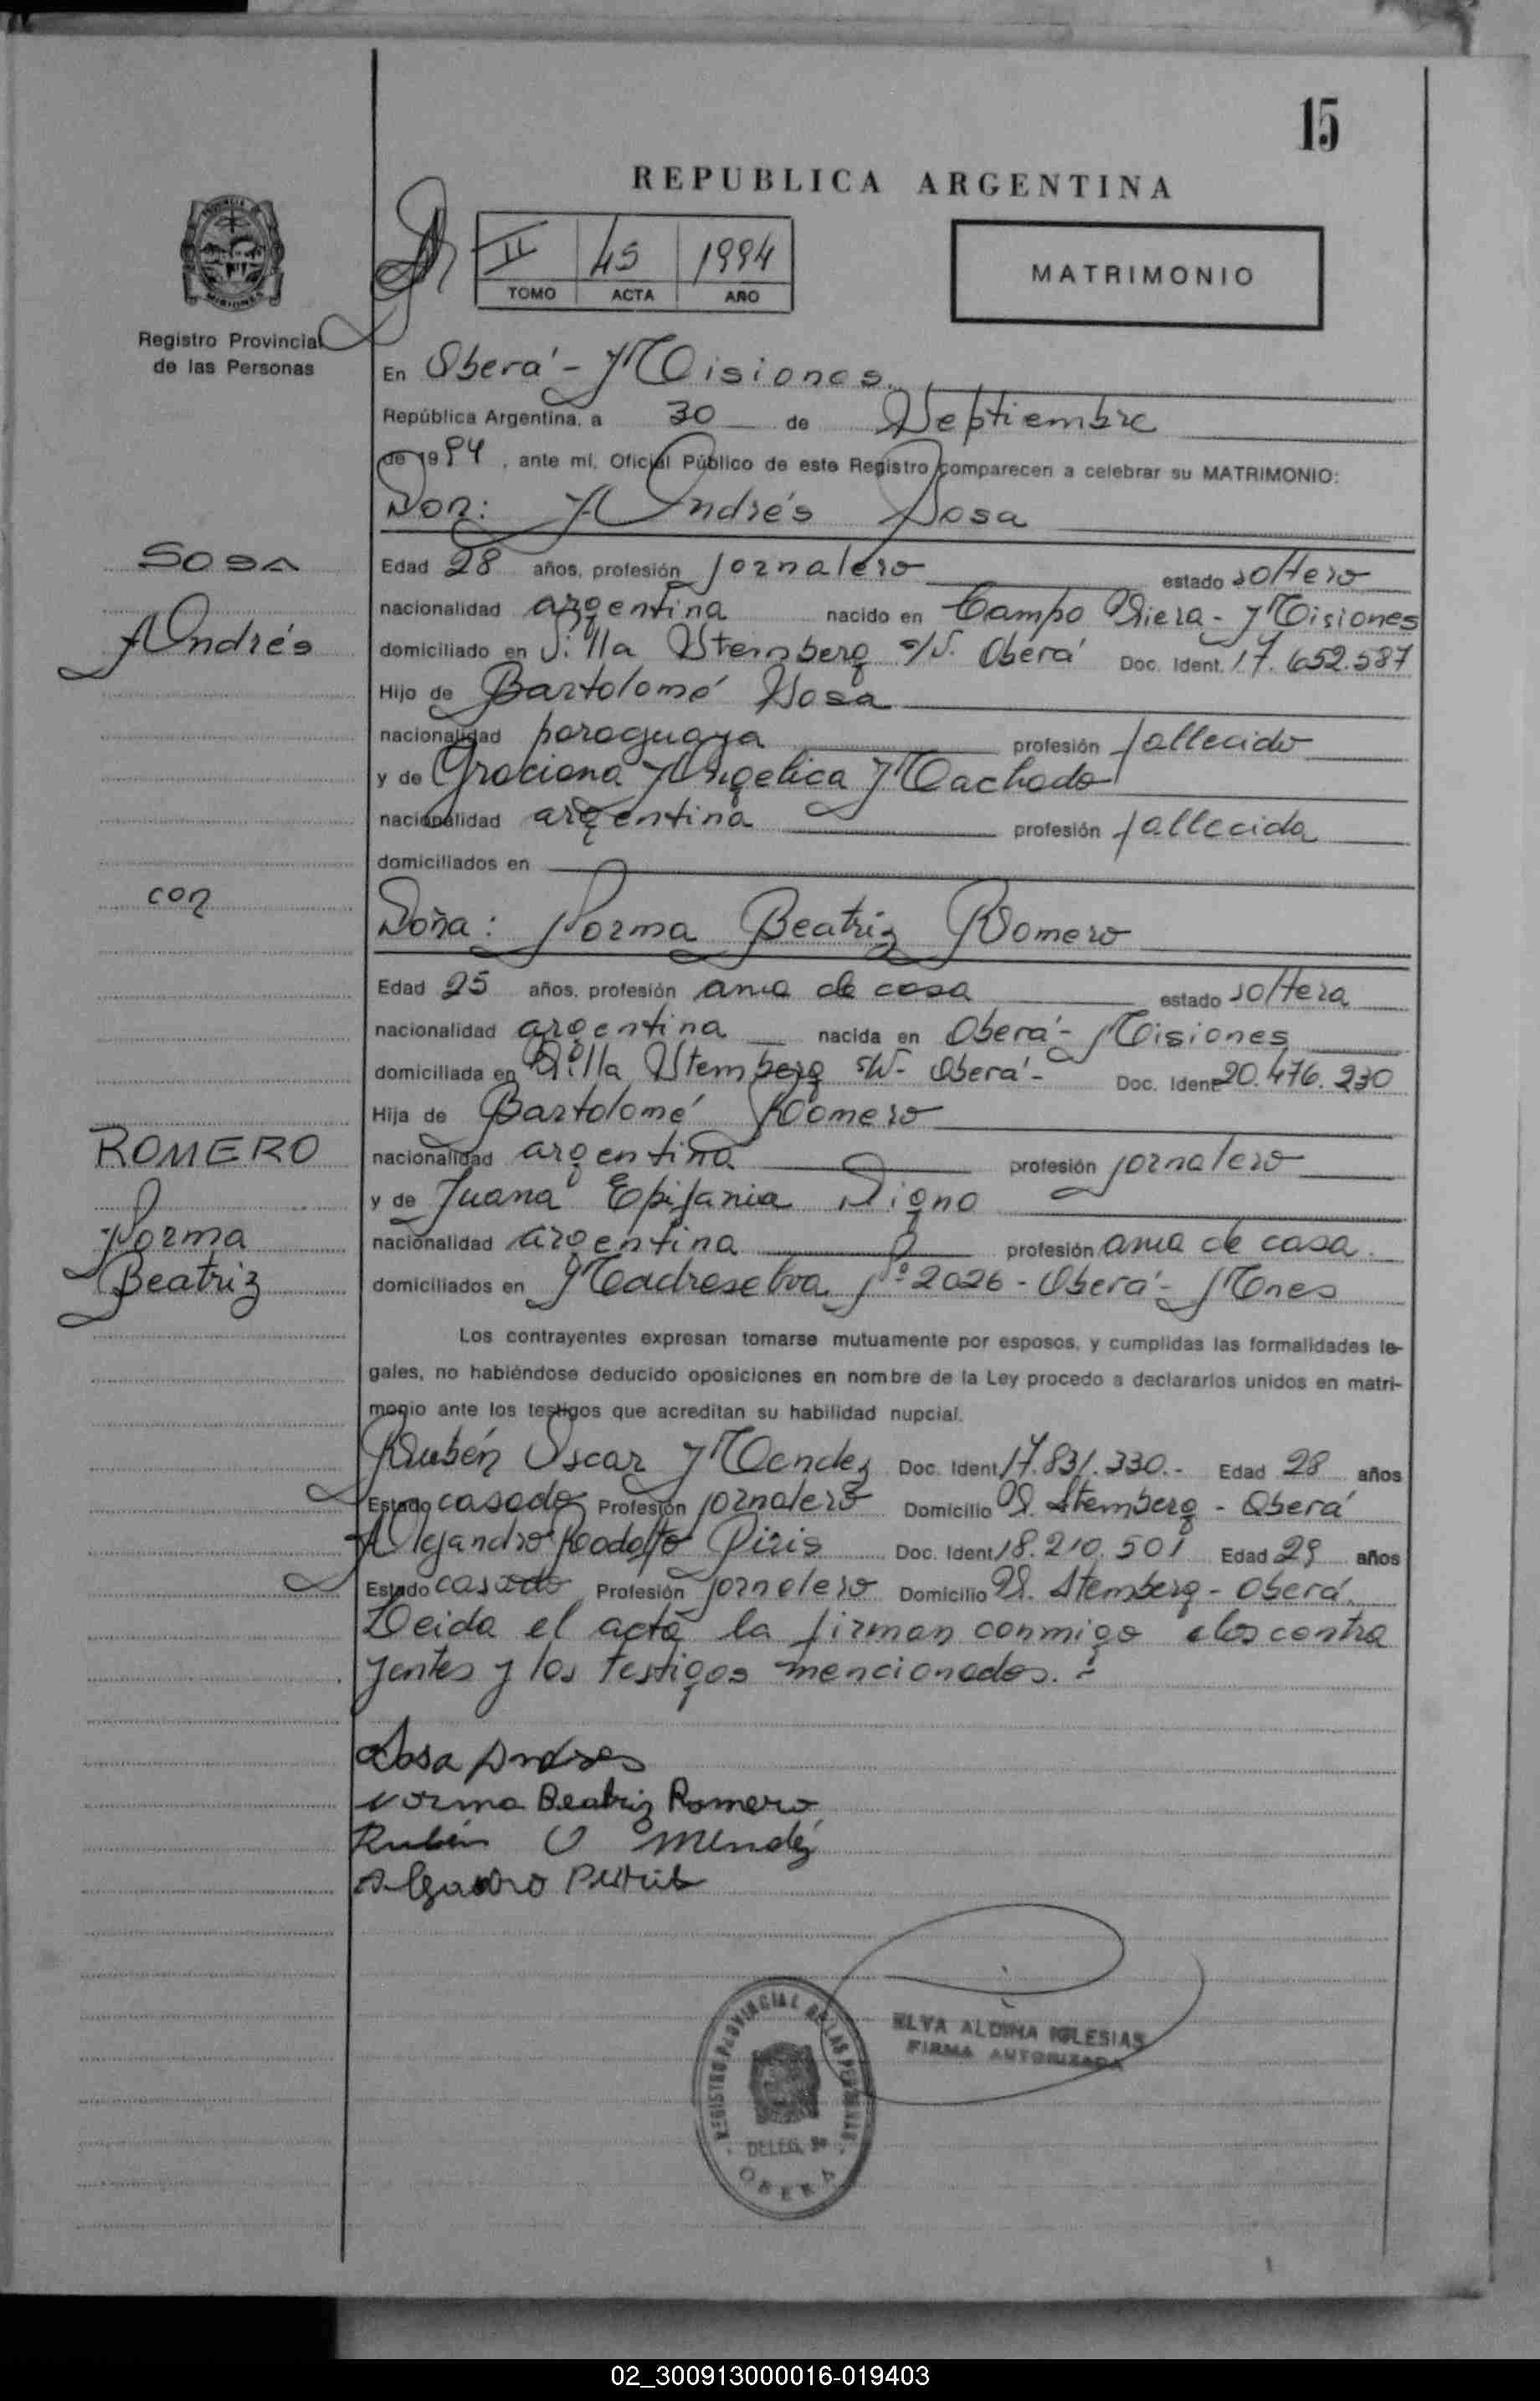 15
REPUBLICA ARGENTINA
II 45 1994
TOMO ACTA AÑO
MATRIMONIO
Registro Provincial
de las Personas
En Oberá - Misiones.
República Argentina, a 30 de Septiembre
de 1994, ante mí, Oficial Público de este Registro comparecen a celebrar su MATRIMONIO:
Don: Andrés Sosa
SOSA
Andrés
Edad 28 años, profesión jornalero estado soltero
nacionalidad argentina nacido en Campo Viera - Misiones
domiciliado en Villa Stemberg s/N. Oberá Doc. Ident. 17.652.587
Hijo de Bartolomé Sosa
nacionalidad paraguaya profesión fallecido
y de Graciana Angelica Machado
nacionalidad argentina profesión fallecida
domiciliados en
con
Doña: Norma Beatriz Romero
Edad 25 años, profesión ama de casa estado soltera
nacionalidad argentina nacida en Oberá - Misiones
domiciliada en Villa Stemberg s/N - Oberá - Doc. Ident. 20.476.230
Hija de Bartolomé Romero
ROMERO
Norma
Beatriz
nacionalidad argentina profesión jornalero
y de Juana Epifania
nacionalidad argentina profesión ama de casa.
domiciliados en Madreselva Nº 2026 - Oberá - Mnes
Los contrayentes expresan tomarse mutuamente por esposos, y cumplidas las formalidades le-
gales, no habiéndose deducido oposiciones en nombre de la Ley procedo a declararlos unidos en matri-
monio ante los testigos que acreditan su habilidad nupcial.
Rubén Oscar Mendez Doc. Ident. 17.831.330.- Edad 28 años
Estado casado Profesión jornalero Domicilio V. Stemberg - Oberá
Alejandro Rodolfo Piris Doc. Ident. 18.210.501 Edad 29 años
Estado casado Profesión jornalero Domicilio V. Stemberg - Oberá.
Leida el acta la firman conmigo los contra
yentes y los testigos mencionados.-
Sosa Andres
Norma Beatriz Romero
Rubén O Mendez
REGISTRO PROVINCIAL DE LAS PERSONAS
DELEG.
OBERA
ELVA ALDINA IGLESIAS
FIRMA AUTORIZADA
02_300913000016-019403